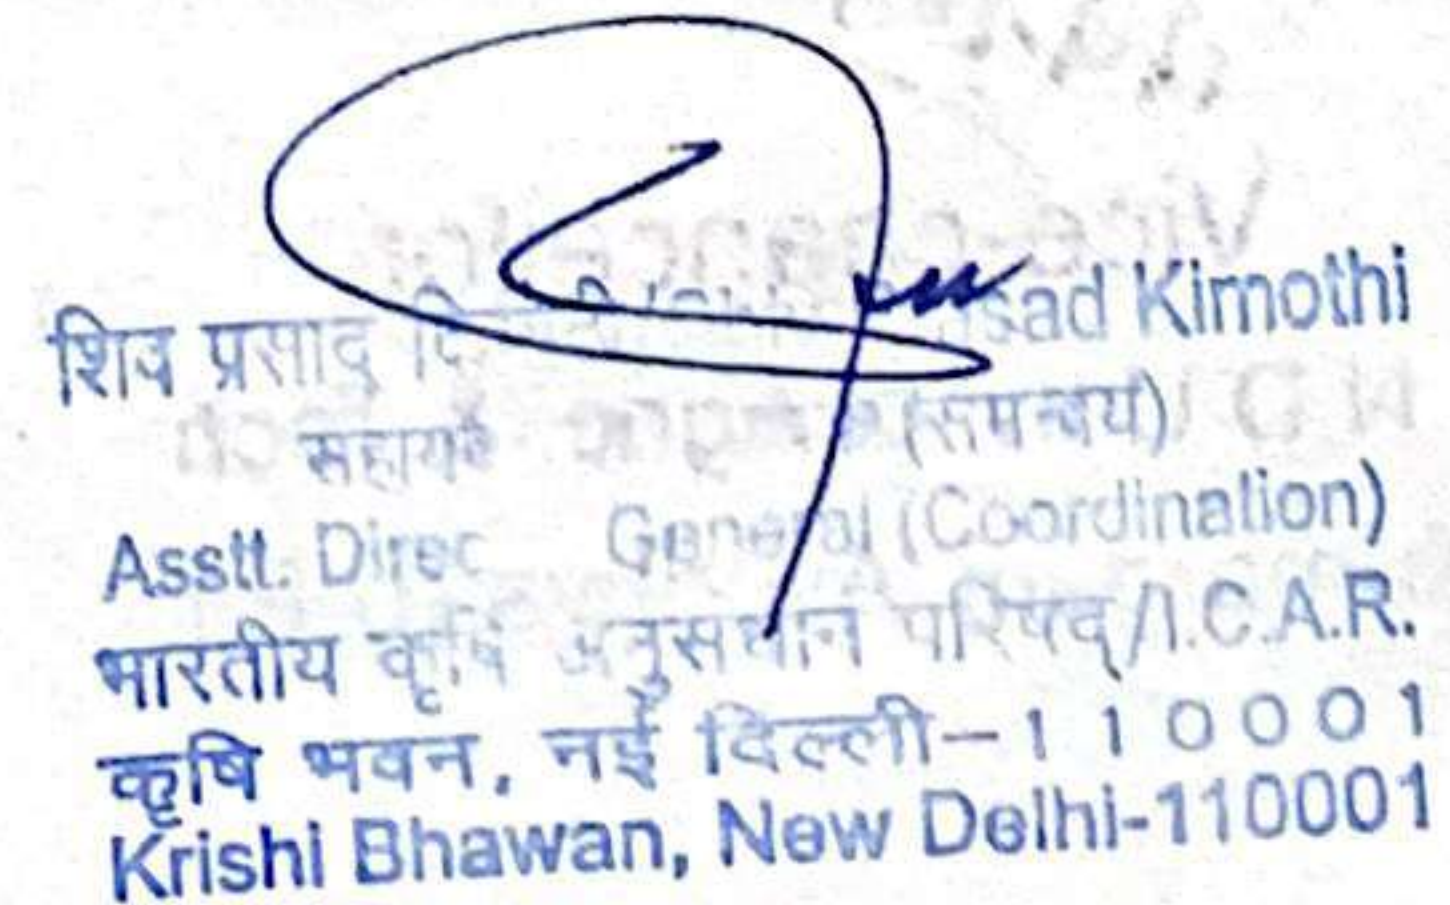 शिव प्रसाद Kimothi
सहायक (समन्वय)
Asstt. General (Coordination)
भारतीय कृषि अनुसंधान परिषद्/I.C.A.R.
कृषि भवन, नई दिल्ली-110001
Krishi Bhawan, New Delhi-110001